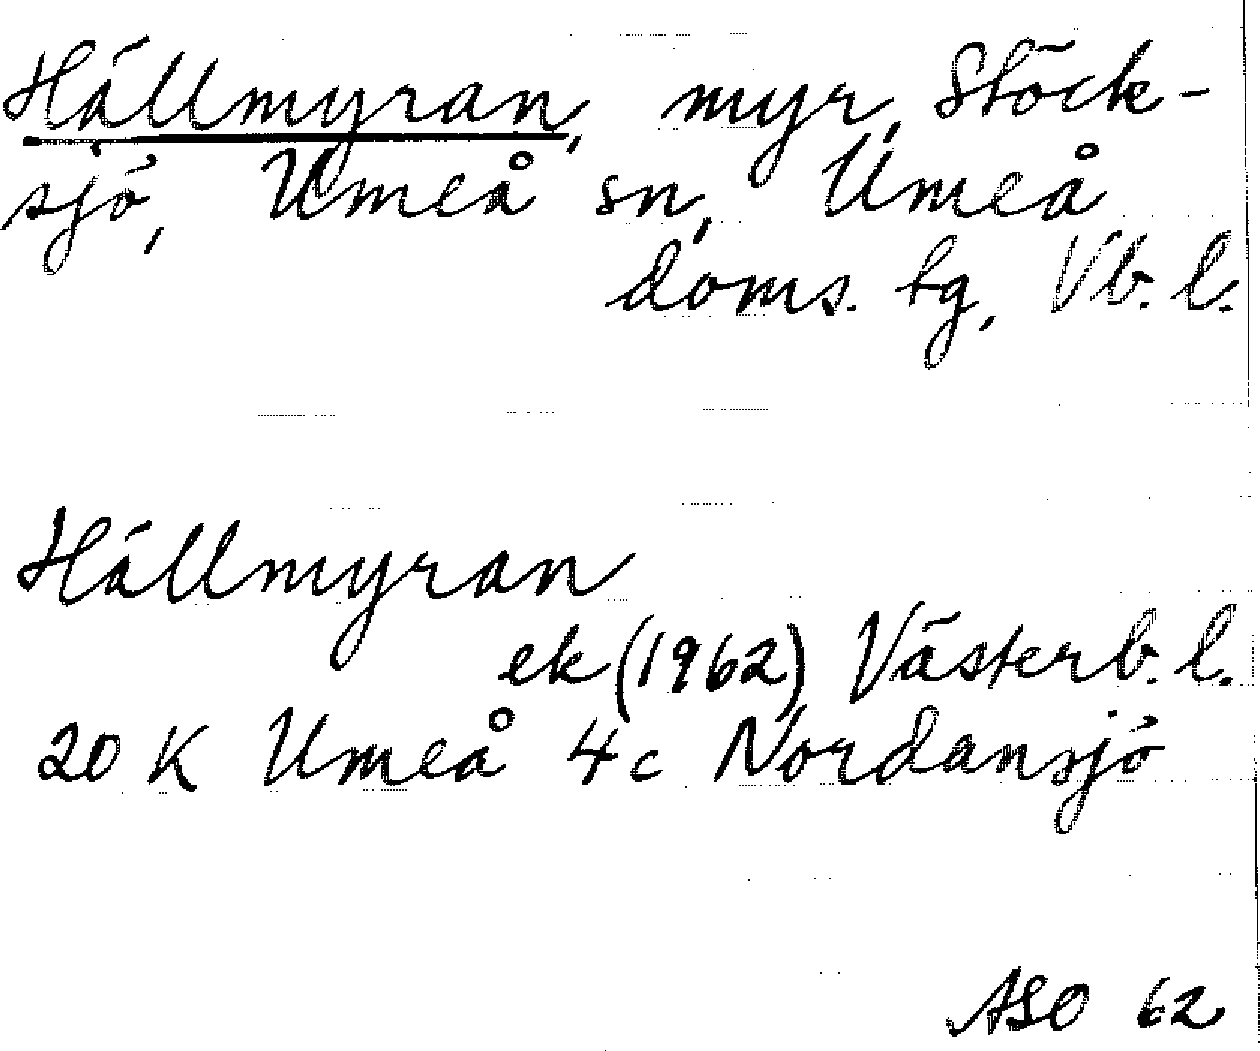 Hällmyran, myr, Stöck-
sjö, Umeå sn, Umeå
doms. tg, Vb. l.
Hällmyran
ek (1962) Västerb. l.
20 K Umeå 4c Nordansjö
ASO 62